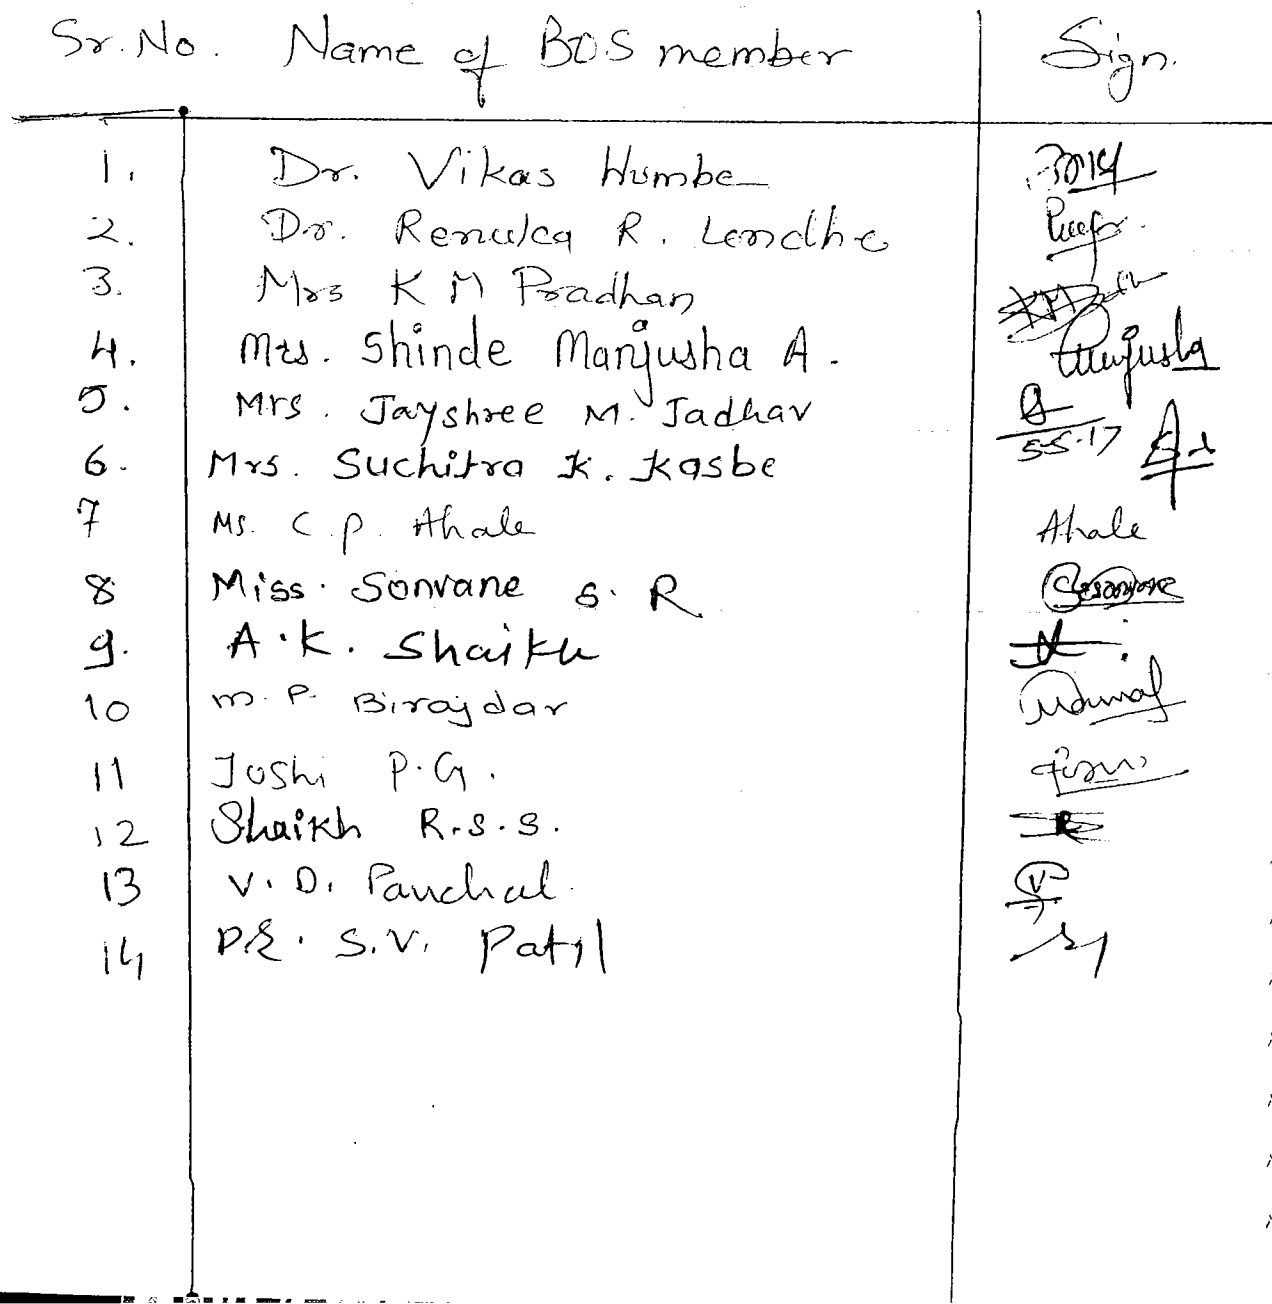 Sr. No. Name of BOS member Sign.
1. Dr. Vikas Humbe
2. Dr. Renuka R. Londhe
3. Mrs K M Pradhan
4. Mrs. Shinde Manjusha A. Manjusha
5. Mrs. Jayshree M. Jadhav 5-5-17
6. Mrs. Suchitra K. Kasbe
7 Ms. C. P. Ahale Ahale
8 Miss. Sonvane S. R
9. A.K. Shaikh
10 M. P. Birajdar
11 Joshi P.G.
12 Shaikh R.S.S.
13 V. D. Panchal
14 Dr. S.V. Patil